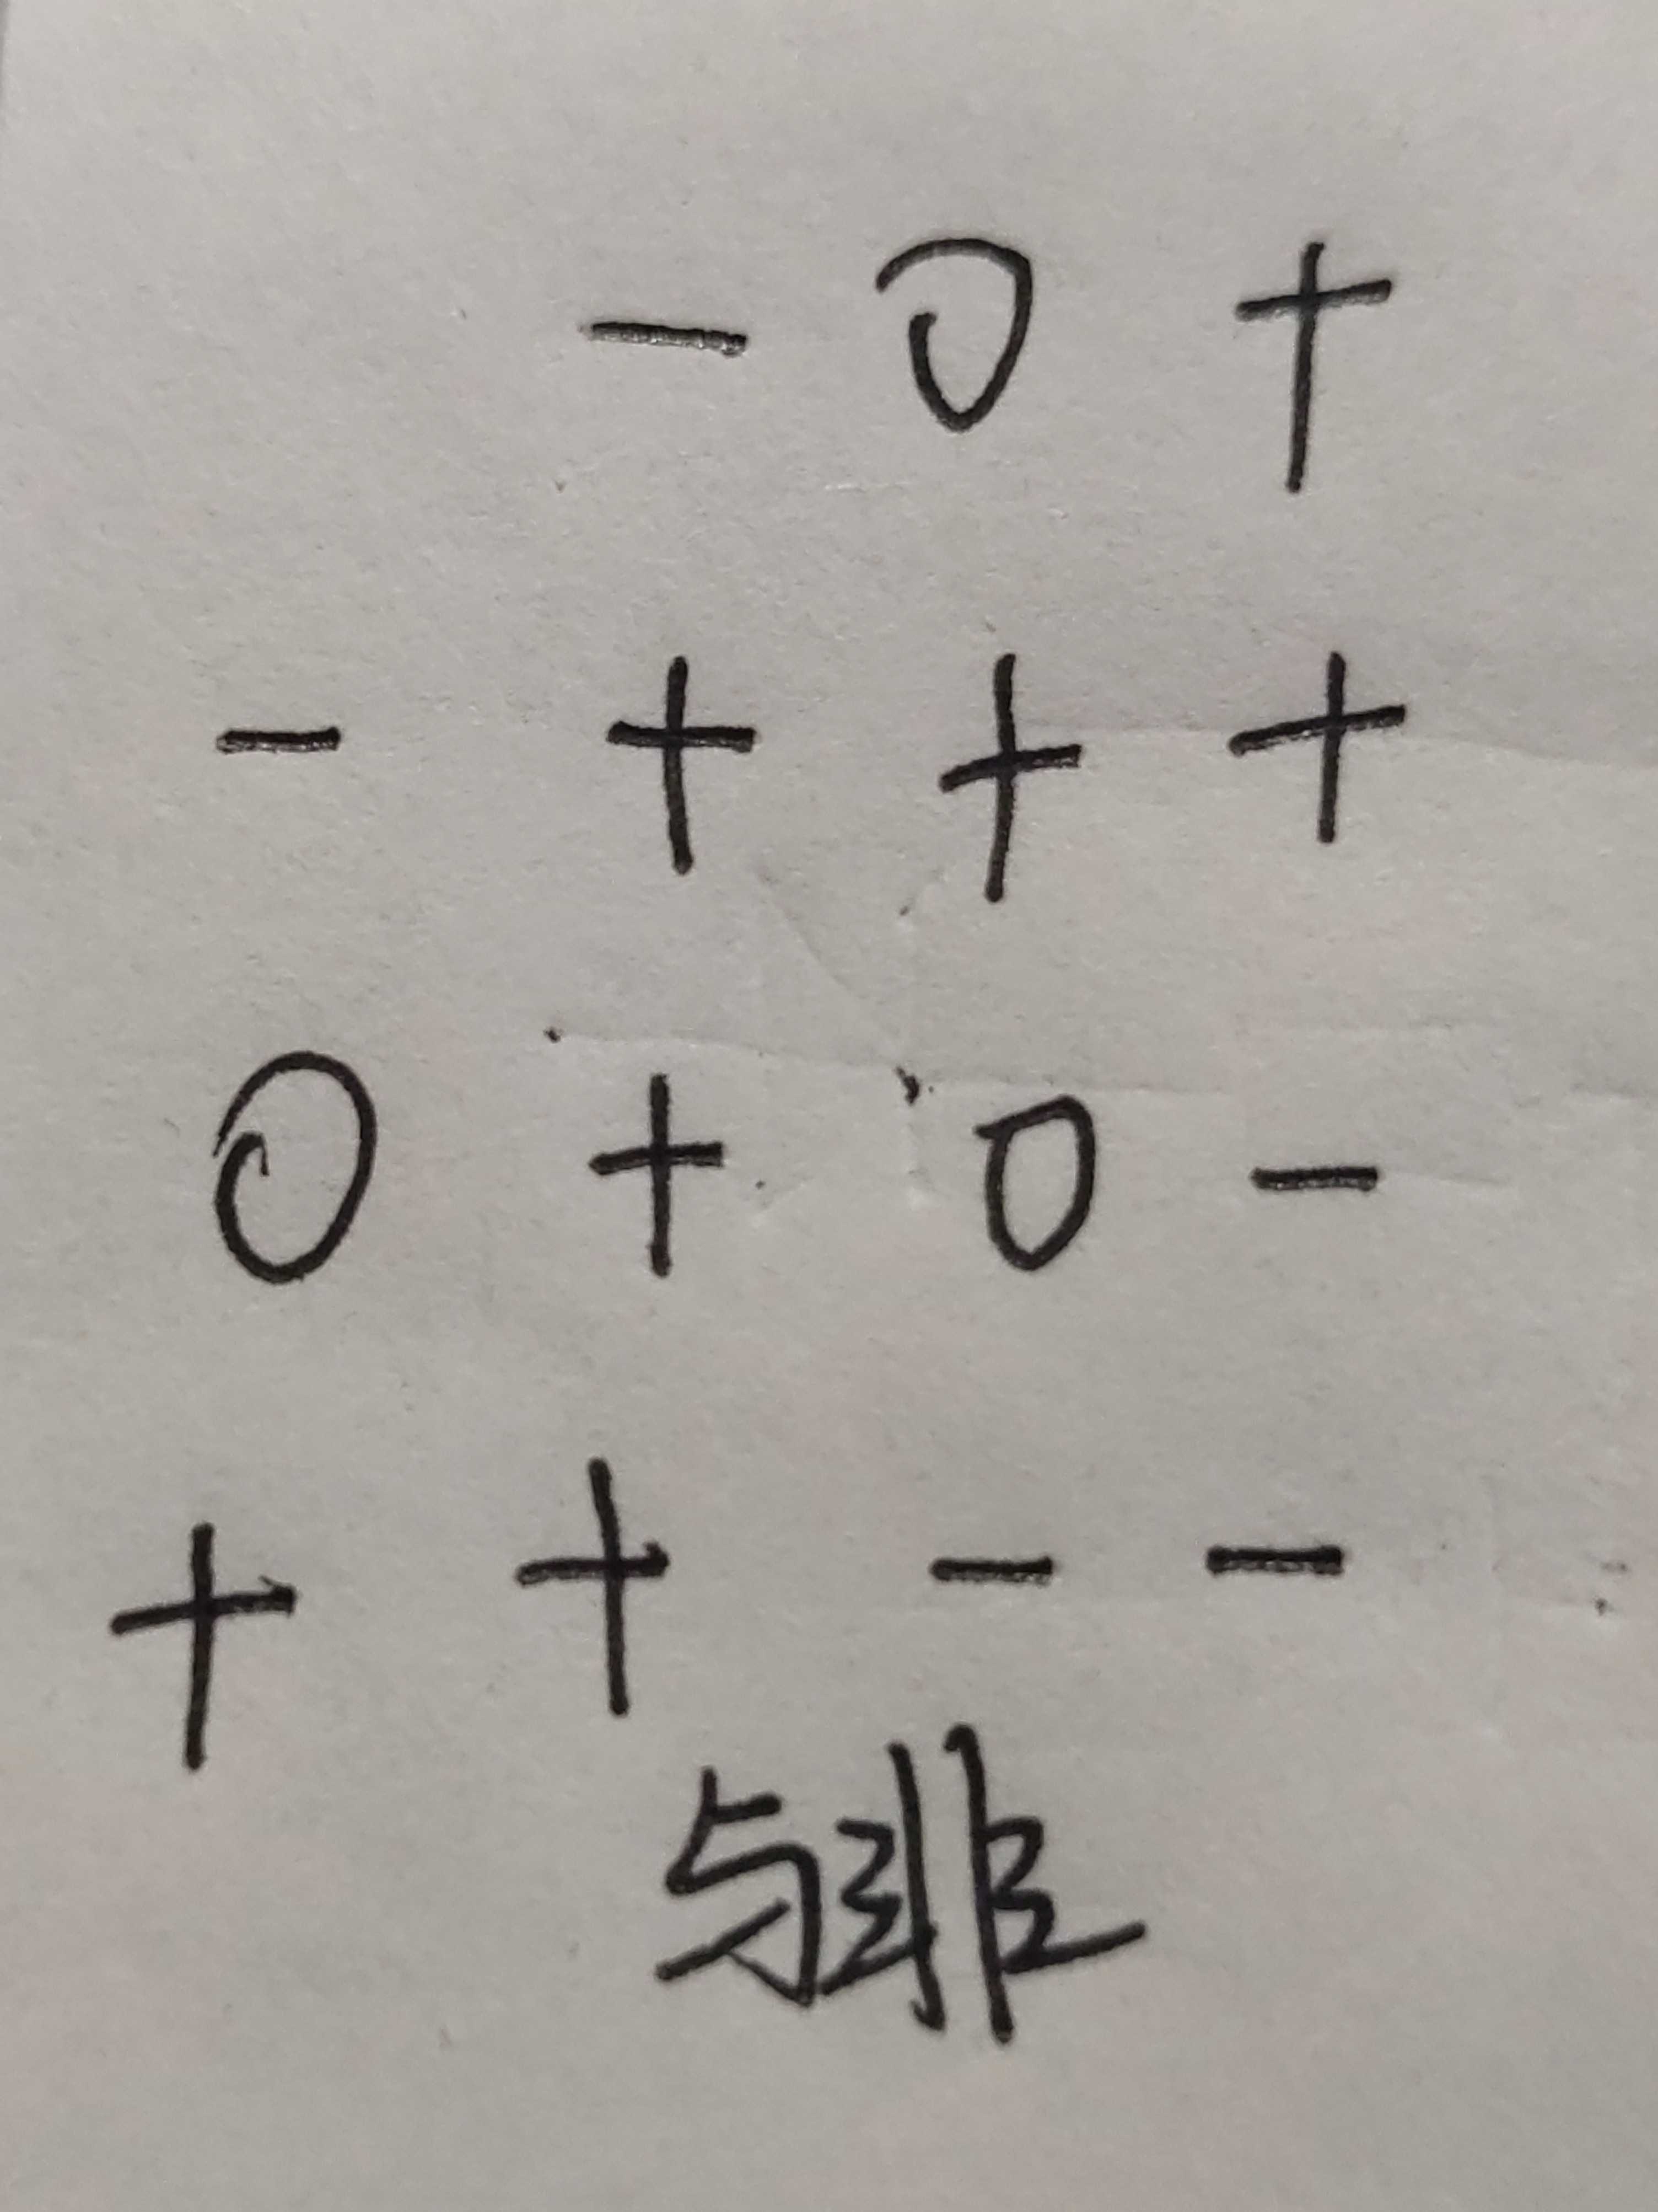 - 0 +
- + + +
0 + 0 -
+ + - -
与非